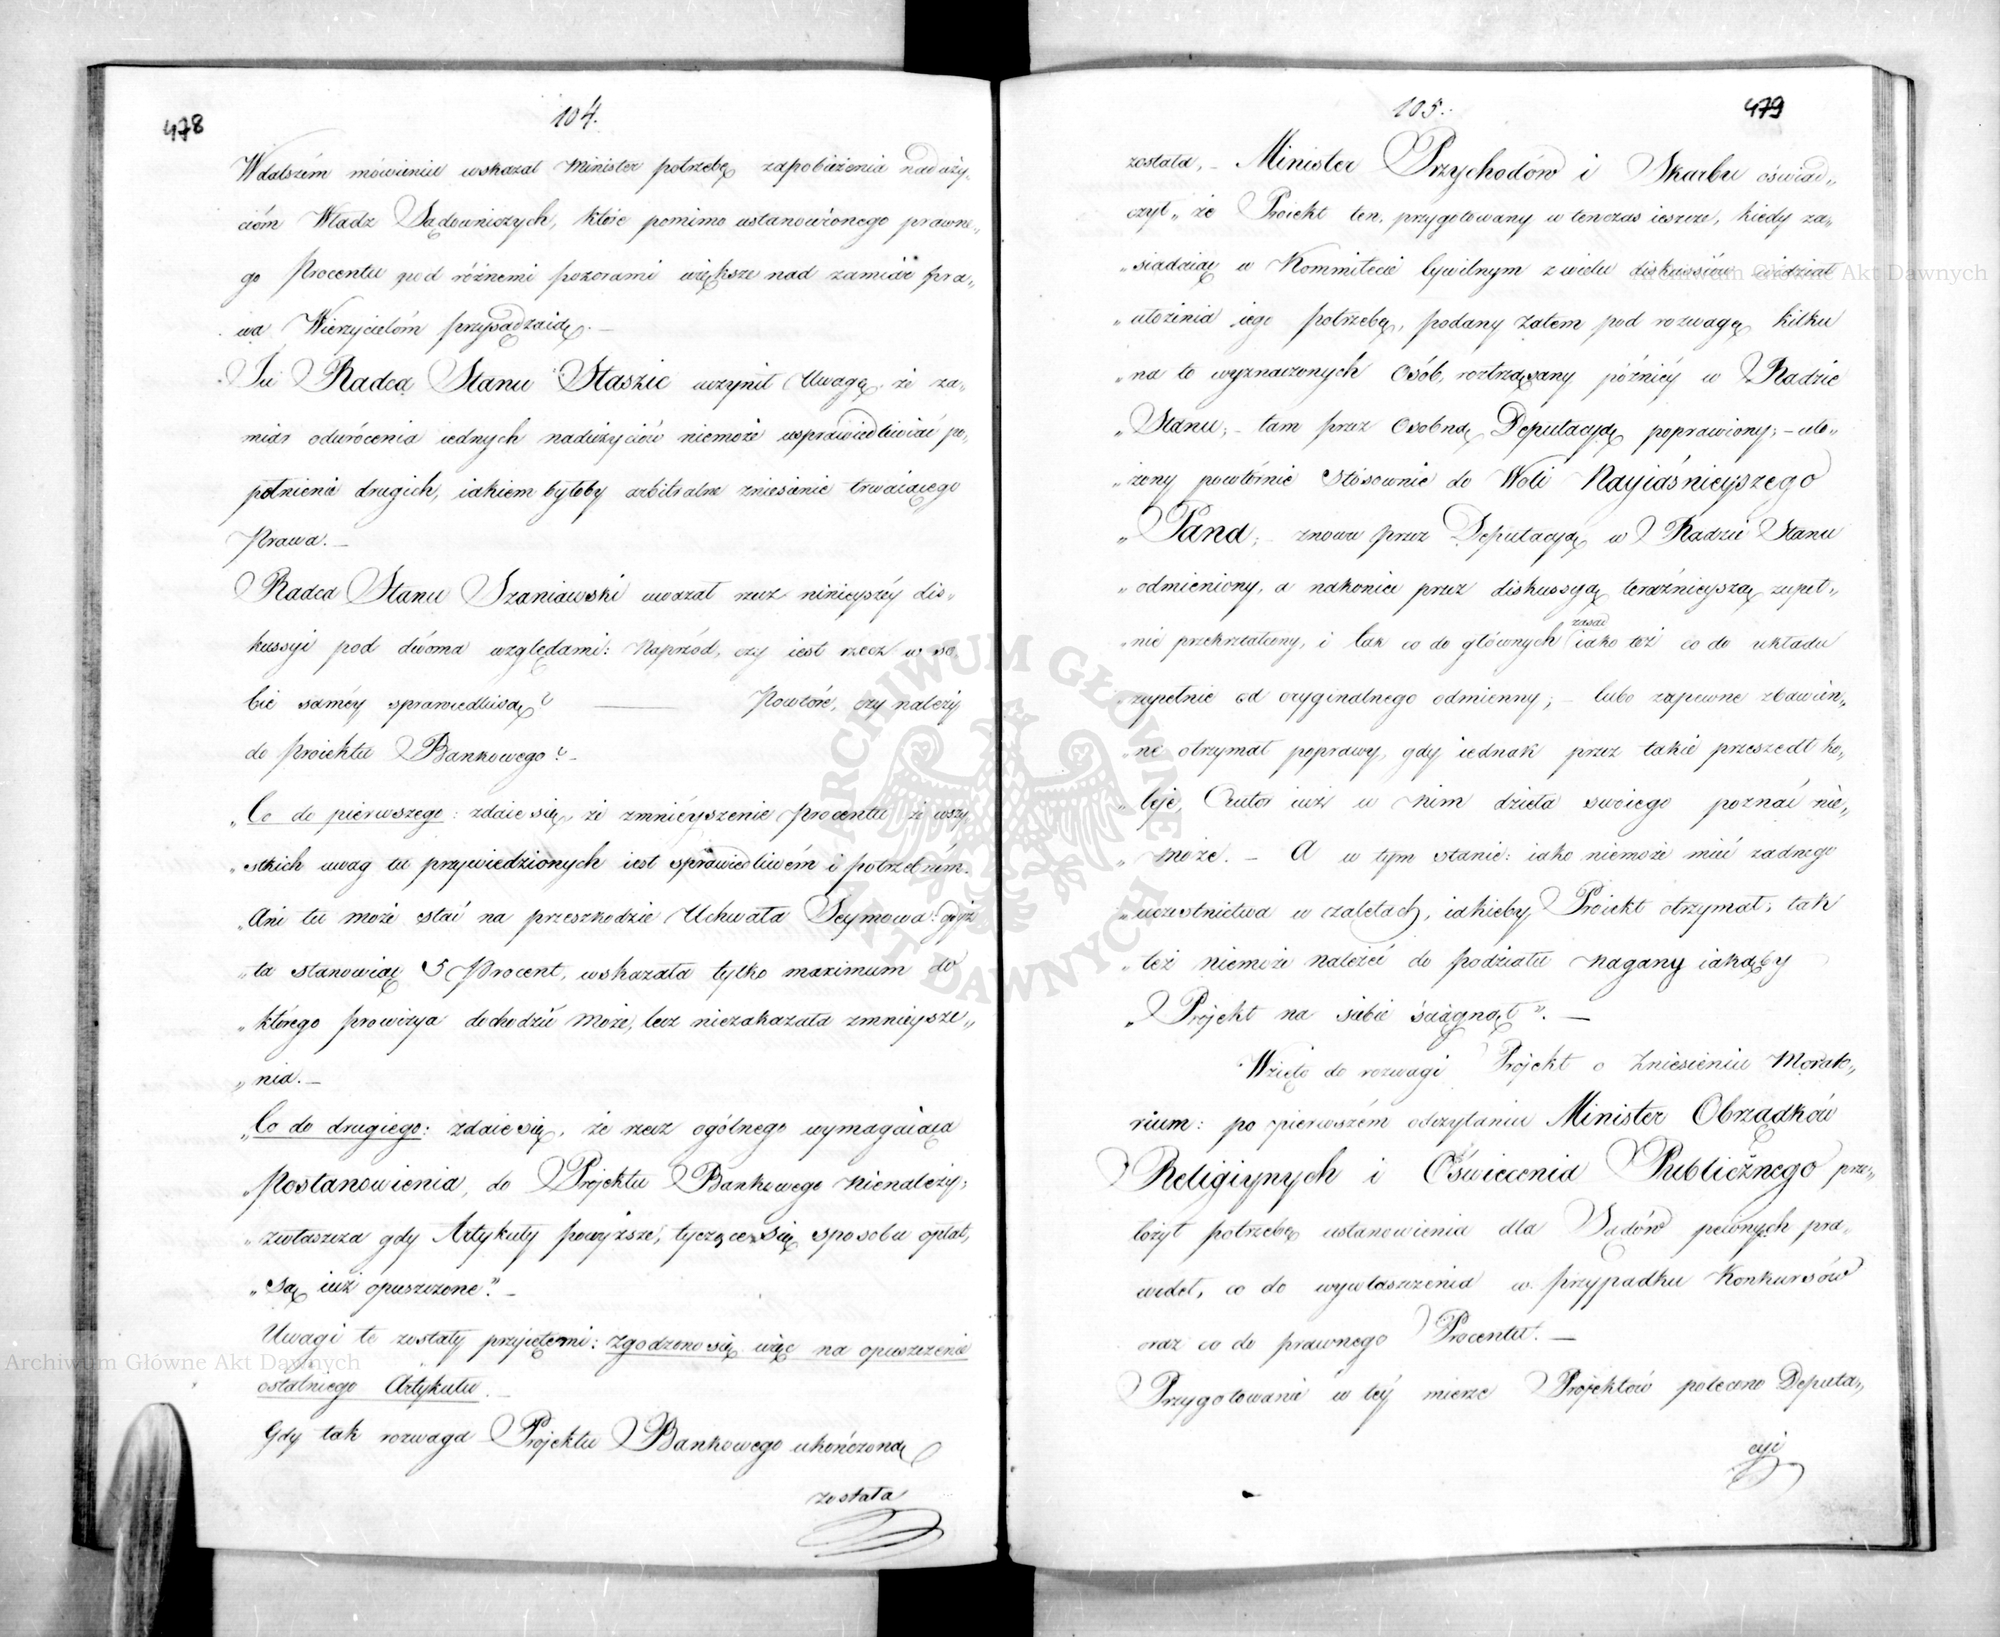 478
104.
W dalszém mówieniu wskazał Minister potrzebę zapobieżenia naduży„
cióm Władz Sądowniczych, które pomimo ustanowionego prawne„
go Procentu pod różnemi pozorami większe nad zamiar Pra„
wa Wierzycielóm przysądzaią. —
Tu Radca Stanu Staszic uczynił Uwagę, że za„
miar odwrócenia iednych nadużyciów niemoże usprawiedliwiać po„
pełnienia drugich, iakiem byłoby arbitralne zniesienie trwaiącego
Prawa. —
Radca Stanu Szaniawski uważał rzecz ninieyszéy dis„
kussyi pod dwóma względami: Naprzód, czy iest rzecz w so
bie saméy sprawiedliwą? ——— Powtóre, czy należy
do Proiektu Bankowego? —
„Co do pierwszego: zdaie się, że zmnieyszenie Procentu ze wszy
„stkich uwag tu przywiedzionych iest sprawiedliwém i potrzebném.
„Ani tu może stać na przeszkodzie Uchwała Seymowa: gdyż
„ta stanowiąc 5 Procent, wskazała tylko maximum do
„którego prowizya dochodzić może, lecz niezakazała zmnieysze„
„nia. —
„Co do drugiego: zdaie się, że rzecz ogólnego wymagaiąca
„Postanowienia, do Projektu Bankowego nienależy;
„zwłaszcza gdy Artykuły powyższe, tyczące się sposobu opłat,
„są iuż opuszczone". —
Uwagi te zostały przyiętemi: zgodzono się więc na opuszczenie
ostatniego Artykułu. —
Gdy tak rozwaga Projektu Bankowego ukończoną
została
479
105.
została, — Minister Przychodów i Skarbu oświad„
czył „że Proiekt ten, przygotowany w tenczas ieszcze, kiedy za„
„siadaiąc w Kommitecie Cywilnym z wielu diskussiów widział
„ułożenia iego potrzebę, podany zatem pod rozwagę kilku
„na to wyznaczonych Osób, roztrząsany późniéy w Radzie
„Stanu; — tam przez Osobną Deputacyą poprawiony; — uło„
„żony powtórnie stósownie do Woli Nayiaśnieyszego
„Pana; znowu przez Deputacyą w Radzie Stanu
„odmieniony, a nakoniec przez diskussyą teraźnieyszą zupeł„
„nie przekształcony, i tak co do głównych zasad iako też co do układu
„zupełnie od oryginalnego odmienny; — lubo zapewne zbawien„
„ne otrzymał poprawy, gdy iednak przez takie przeszedł ko„
„leje, Autor iuż w nim dzieła swoiego poznać nie„
„może. — A w tym stanie: iako niemoże mieć żadnego
„uczestnictwa w zaletach, iakieby Proiekt otrzymał; tak
„też niemoże należeć do podziału nagany iakąby
„Projekt na siebie ściągnął". —
Wzięto do rozwagi Projekt o Zniesieniu Morato„
rium: po pierwszém odczytaniu Minister Obrządków
Religiynych i Oświecenia Publicznego prze„
łożył potrzebę ustanowienia dla Sądów pewnych pra„
wideł, co do wywłaszczenia w przypadku Konkursów
oraz co do prawnego Procentu. —
Przygotowanie w téy mierze Projektów polecono Deputa„
cyi
Archiwum Główne Akt Dawnych
Archiwum Główne Akt Dawnych
ARCHIWUM GŁÓWNE AKT DAWNYCH